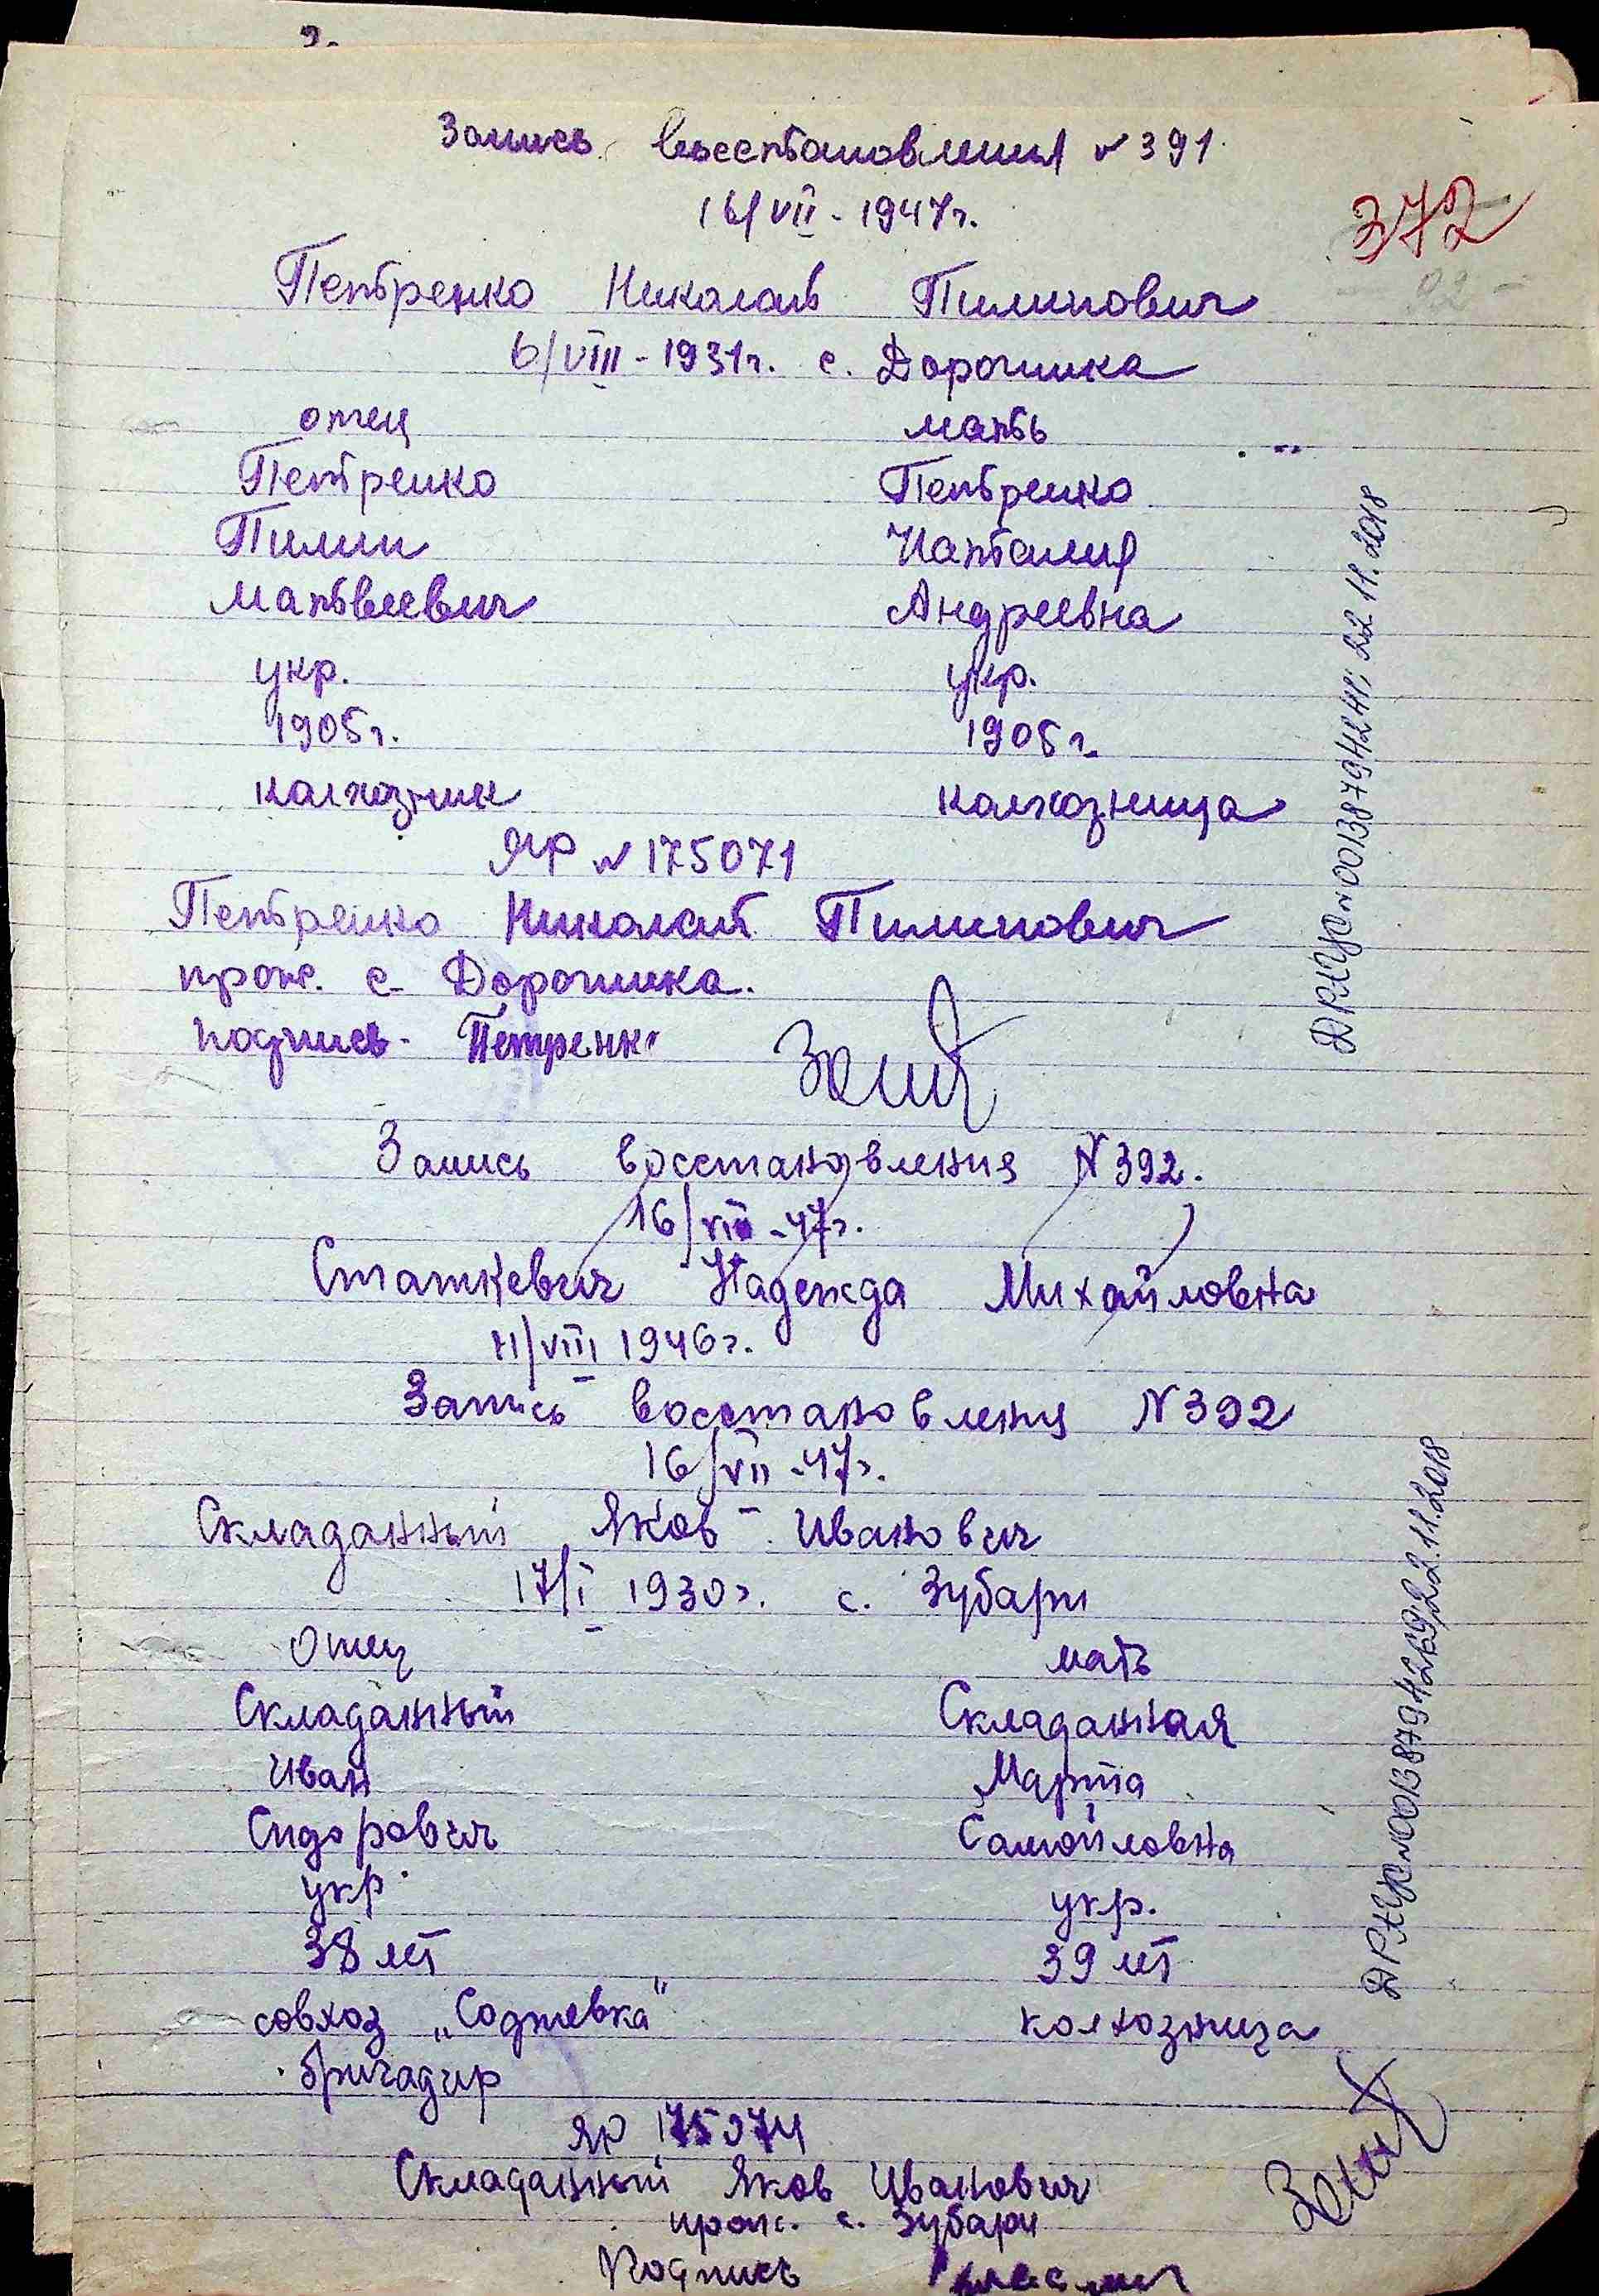 Запись восстановления № 391.
16/VII - 1947г.
372
Петренко Николай Пилипович
6/VIII - 1931г. с. Дорогинка
отец мать
Петренко Петренко
Пилип Наталия
Матвеевич Андреевна
укр. укр.
1905г. 1905г.
колхозник колхозница
ЯР № 175071
Петренко Николай Пилипович
прож. с. Дорогинка.
подпись - Петренко
ДРАЦС №00138794241; 22.11.2018
Запись восстановления N 392.
16/VII - 47г.
Сташкевич Надежда Михайловна
11/VIII 1946г.
Запись восстановления N 392
16/VII - 47г.
Складанный Яков Иванович
17/I 1930г. с. Зубари
отец мать
Складанный Складанная
Иван Марта
Сидорович Самойловна
укр. укр.
38 лет 39 лет
совхоз колхозница
бригадир
ЯР 175074
Складанный Яков Иванович
прож. с. Зубари
Подпись
ДРАЦС №00138794269; 22.11.2018